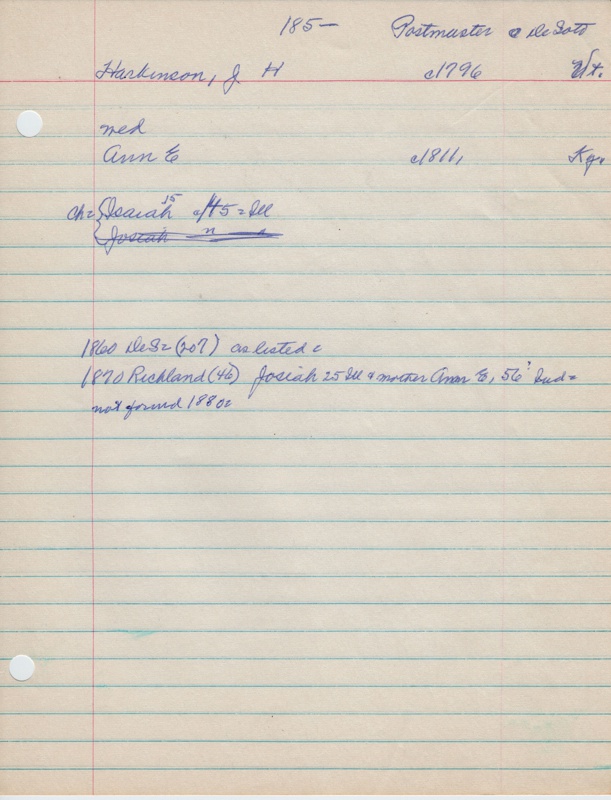 185— Postmaster @ DeSoto
Harkinson, J. H c1796 Vt.
med
Ann E c1811, Ky.
Ch= Isaiah 15 c/45 = Ill
Josiah "
1860 DeS= (207) as listed =
1870 Richland (46) Josiah 25 Ill & mother Ann E, 56 Ind=
not found 1880=